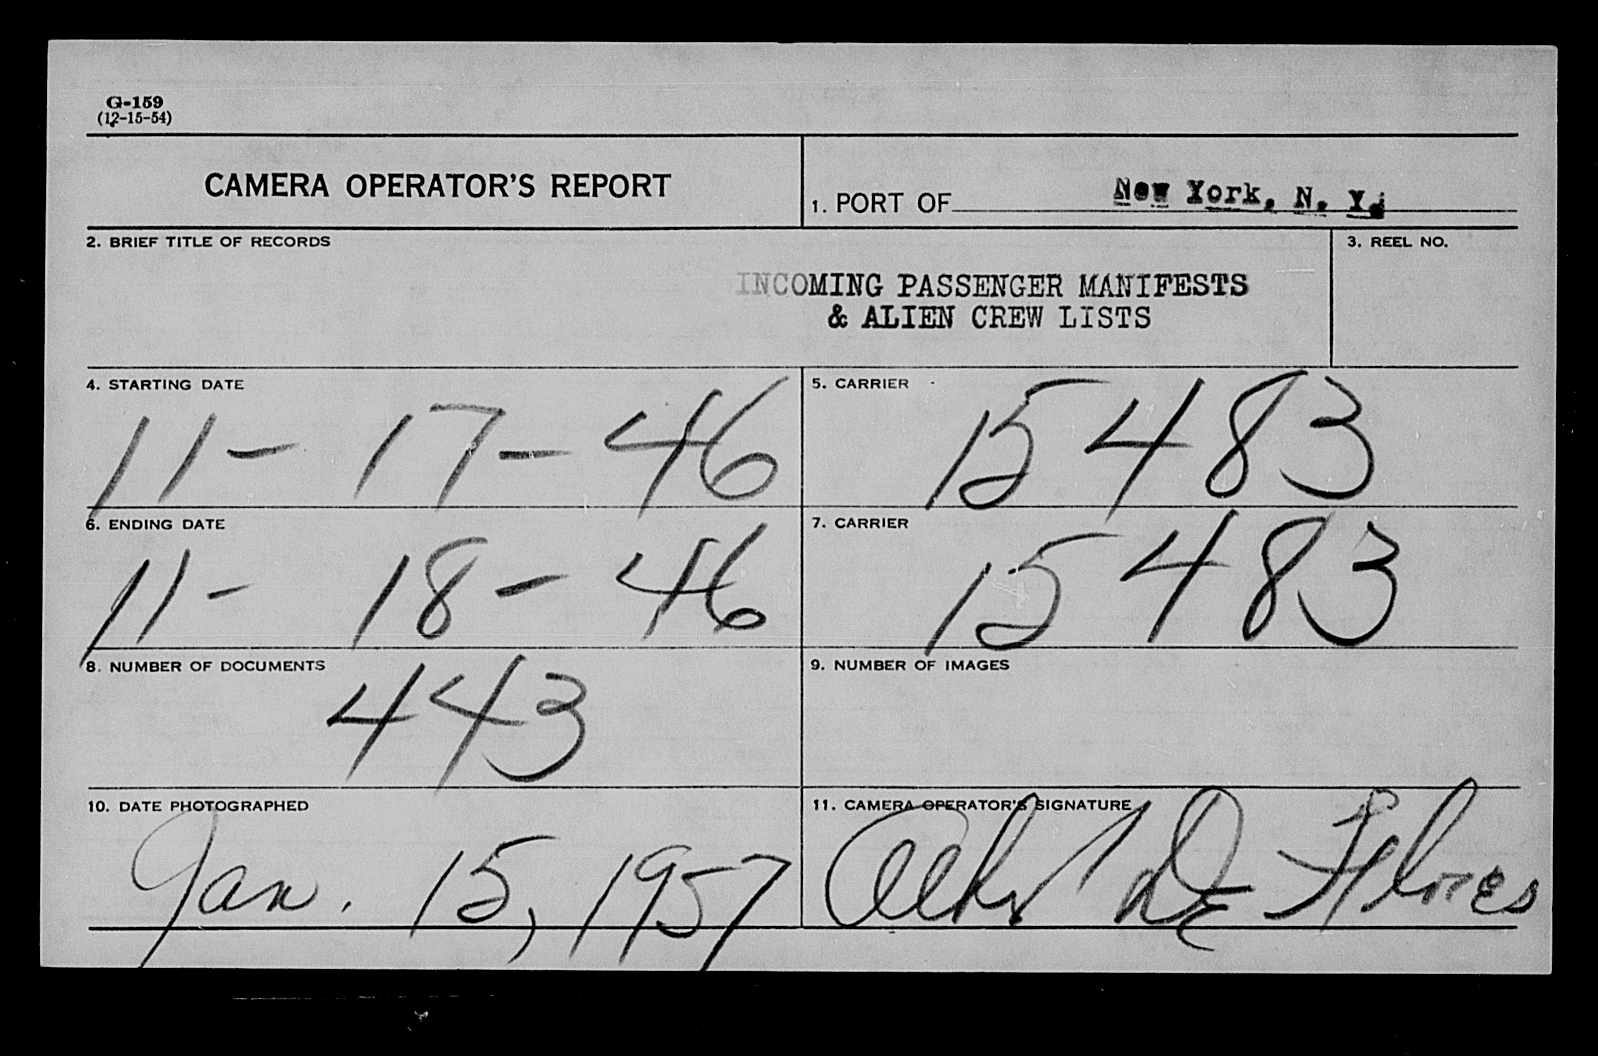 G-159
(12-15-54)
CAMERA OPERATOR'S REPORT
1. PORT OF New York, N. Y.
2. BRIEF TITLE OF RECORDS
3. REEL NO.
INCOMING PASSENGER MANIFESTS
& ALIEN CREW LISTS
4. STARTING DATE
11-17-46
5. CARRIER
15483
6. ENDING DATE
11-18-46
7. CARRIER
15483
8. NUMBER OF DOCUMENTS
443
9. NUMBER OF IMAGES
10. DATE PHOTOGRAPHED
Jan. 15, 1957
11. CAMERA OPERATOR'S SIGNATURE
De Flores